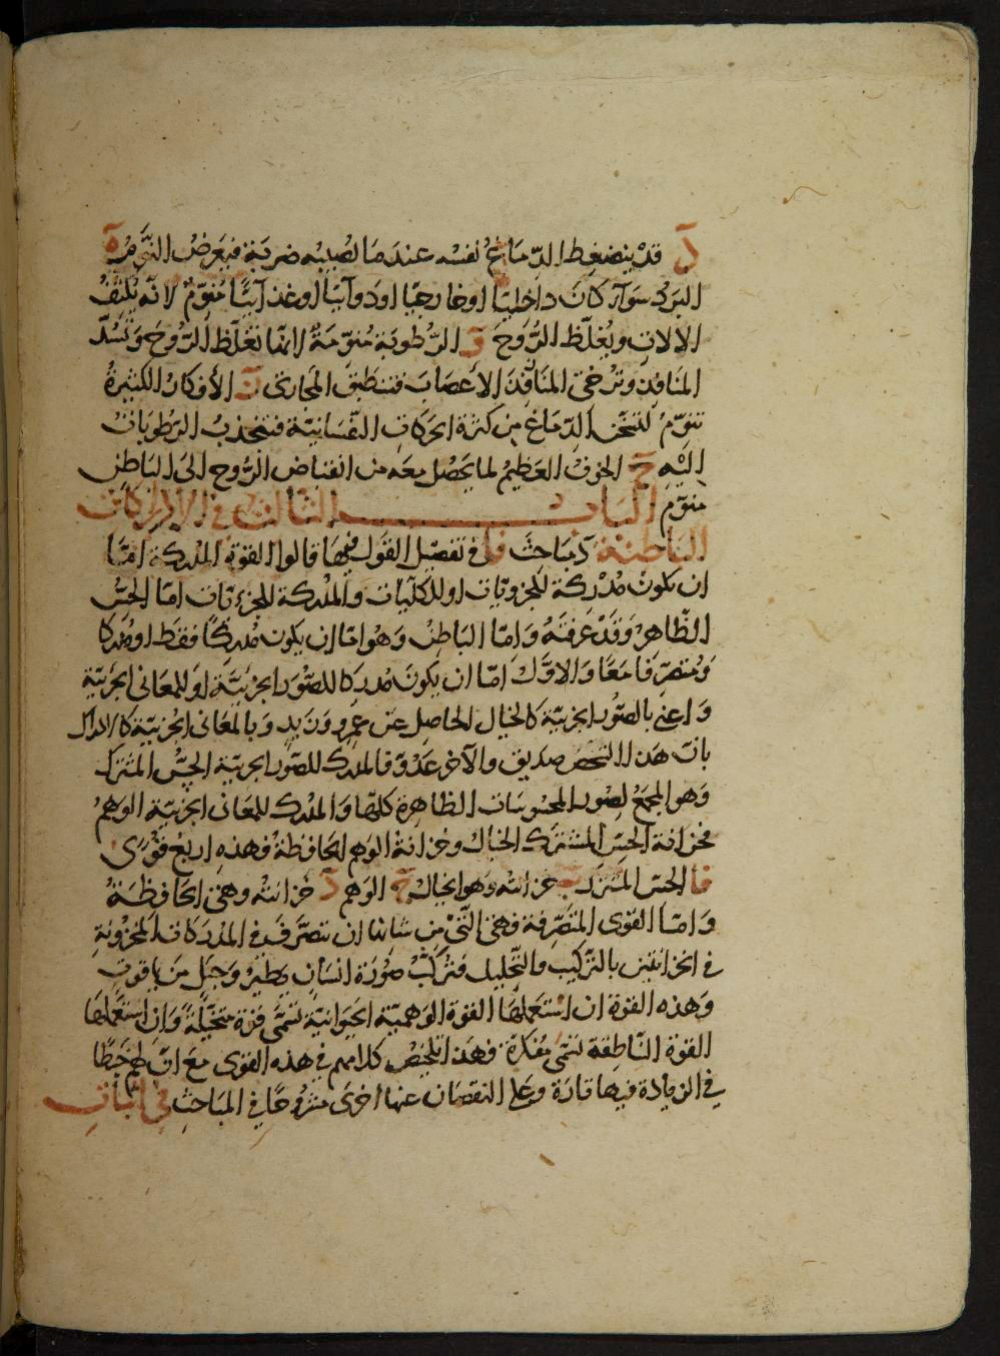 د قد ينضغط الدّماغ نفسه عند ما تصيبه ضربة فيعرض النّوم ه
البرد سوآء كان داخليّا او خارجيّا او دوآئيّا او غذآئيّا مُنوّمٌ لانّه يكثّف
الالات ويُغلّظ الرُّوحَ و الرّطوبة مُنوّمةٌ لانّها تغلّظ الرُّوح وتَسُدّ
المنافذ وترخى المنافذ الاعصاب فتنطبق المجارى ز الأفكار الكثيرةُ
تنوّم لتسخّن الدّماغ من كثرة الحركات النّفسانيّة فتنجذب الرّطوبات
اليْه ح الخوف العظيمُ لما يحصل معه من انقباض الرُّوح الى الباطن
منوّم الباب الثالث فى الادراكات
الباطنة د مباحث فا فى تفصيل القول فيها قالوا القوّة المدركة امّا
ان تكون مُدركة للجزويّات او للكلّيات والمُدركة للجزءيّات امّا الحسّ
الظّاهر وقد عرفته وامّا الباطنُ وهو امّا ان يكون مُدركًا فقط او مُدركا
ومُتصرّفا معًا والاوّل امّا ان يكون مُدركا للصّور الجزئيّة او للمعانى الجزئيّة
واعنى بالصّور الجزئيّة كالخيال الحاصل عن عمرو وزيد وبالمعانى الجزئيّة كالادراك
بانّ هذا الشخص صديق والآخر عدوّ فالمدرك للصّور الجزئيّة الحسّ المشترك
وهو المجمعُ لصُور المحسوسات الظاهرة كلّها والمُدرك للمعانى الجزئيّة الوهمُ
فخزانة الحسّ المشترك الخيال وخزانة الوهم الحافظة فهذه اربع قُوًى
فا الحسّ المشترك ب خزانته وهو الخيال ج الوهم د خزانته وهى الحافظةُ
وامّا القوى المتصّرفة فهى الّتى من شانها ان تتصرّف فى المدركات المخزونة
فى الخزانتين بالتّركيب والتّحليل فتُركّبُ صُورة انسان يطير وجبل من ياقوت
وهذه القوة ان استعملها القوة الوهميّة الحيوانيّة تسمّى قوّة متخيّلةً وان استعملها
القوة النّاطقة تسمّى مفكّرة فهذا تلخيص كلامهم فى هذه القوى مع انّ لهم خبطًا
فى الزيادة فيها تارة وعلى النقصان عنها اخرى مشروحًا فى المباحث فى اثبات